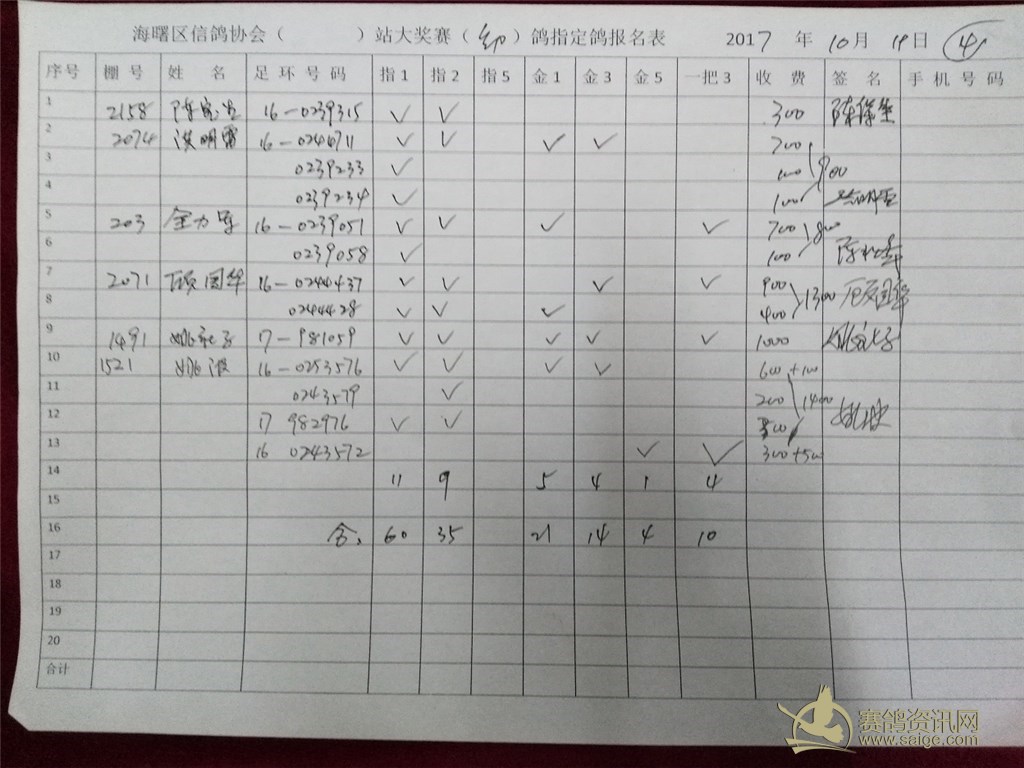 海曙区信鸽协会（ ）站大奖赛（幼）鸽指定鸽报名表 2017 年 10月 19日 4
序号 棚号 姓名 足环号码 指1 指2 指5 金1 金3 金5 一把3 收费 签名 手机号码
1 2158 16-0239315 ✓ ✓ 300
2 2074 洪明雷 16-0244711 ✓ ✓ ✓ ✓ 700
3 0239233 ✓ 100 900
4 0239234 ✓ 100
5 203 金力军 16-0239051 ✓ ✓ ✓ ✓ 700 800
6 0239058 ✓ 100
7 2071 顾国华 16-0244437 ✓ ✓ ✓ ✓ 900 1300 顾国华
8 0244428 ✓ ✓ ✓ 400
9 1491 17-981059 ✓ ✓ ✓ ✓ ✓ 1000
10 1521 姚波 16-0253576 ✓ ✓ ✓ ✓ 600 +100
11 0243579 ✓ 200 1400
12 17 982976 ✓ ✓ 300 姚波
13 16 0243572 ✓ ✓ 300+500
14 11 9 5 4 1 4
15
16 合: 60 35 21 14 4 10
17
18
19
20
合计
赛鸽资讯网
www.saige.com